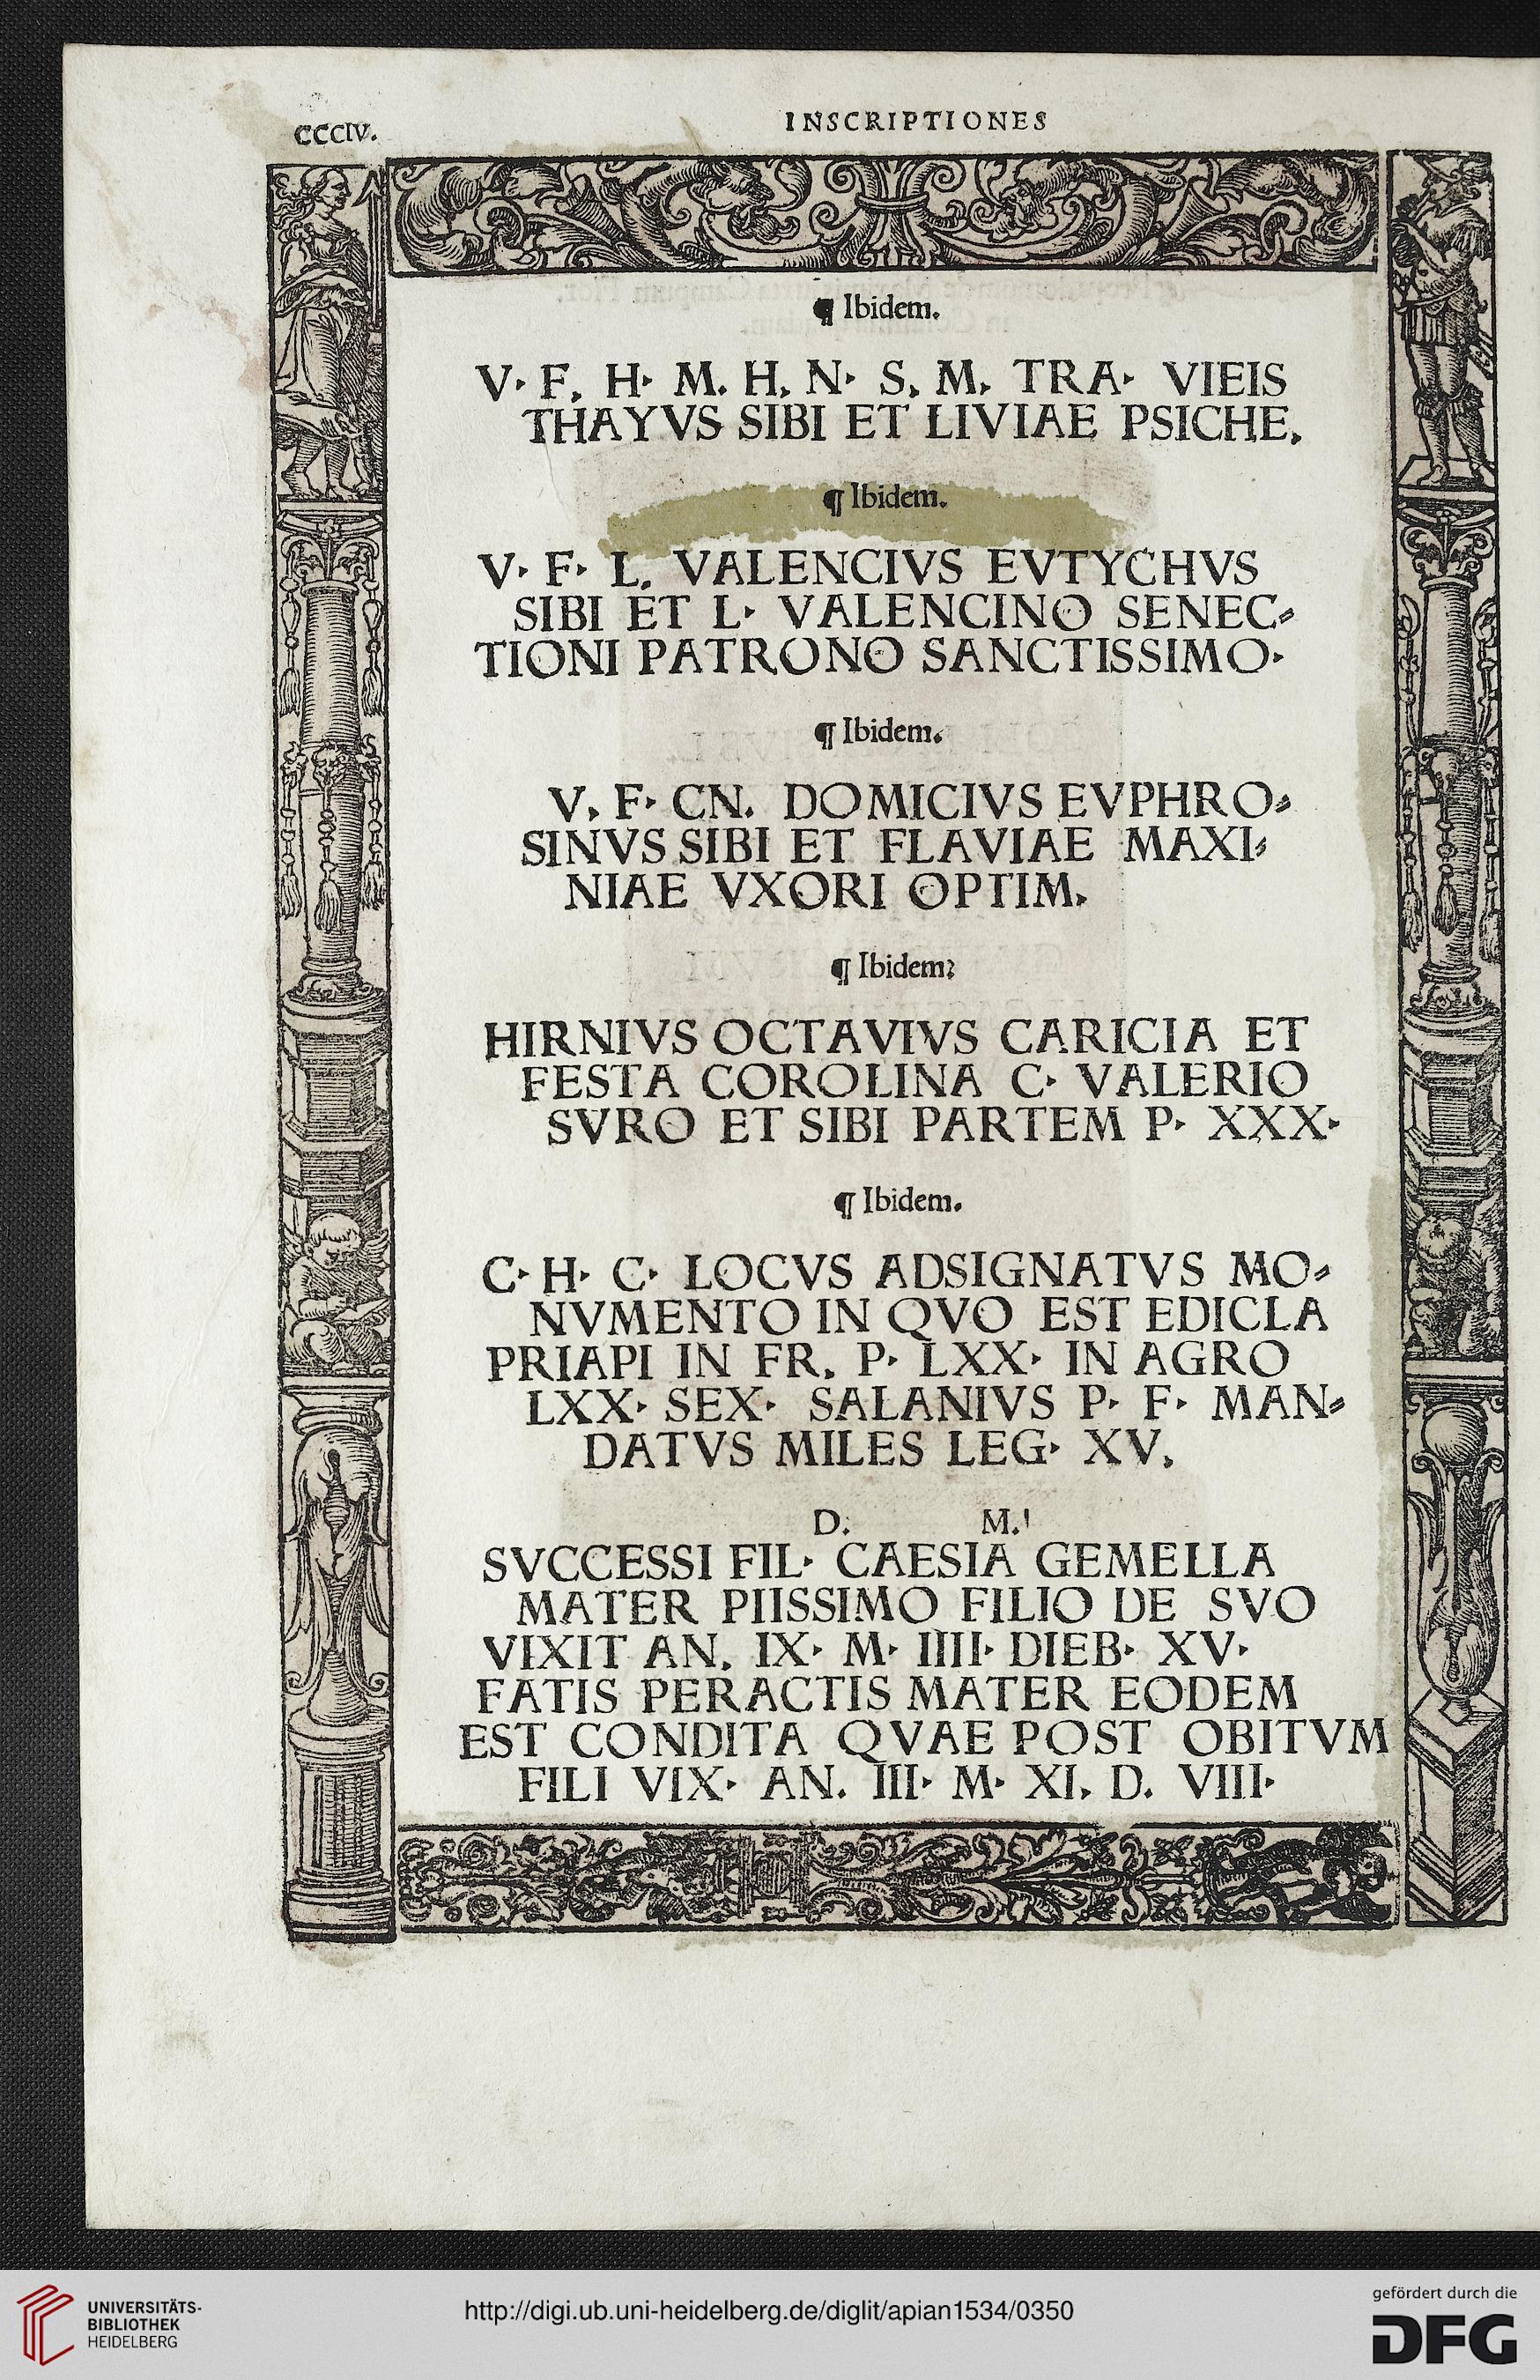 CCCIV.
INSCRIPTIONES
¶ Ibidem.
V. F. H. M. H. N. S. M. TRA. VIEIS
THAYVS SIBI ET LIVIAE PSICHE.
¶ Ibidem.
V. F. L. VALENCIVS EVTYCHVS
SIBI ET L. VALENCINO SENEC⸗
TIONI PATRONO SANCTISSIMO.
¶ Ibidem.
V. F. CN. DOMICIVS EVPHRO⸗
SINVS SIBI ET FLAVIAE MAXI⸗
NIAE VXORI OPTIM.
¶ Ibidem?
HIRNIVS OCTAVIVS CARICIA ET
FESTA COROLINA C. VALERIO
SVRO ET SIBI PARTEM P. XXX.
¶ Ibidem.
C. H. C. LOCVS ADSIGNATVS MO⸗
NVMENTO IN QVO EST EDICLA
PRIAPI IN FR. P. LXX. IN AGRO
LXX. SEX. SALANIVS P. F. MAN⸗
DATVS MILES LEG. XV.
D. M.
SVCCESSI FIL. CAESIA GEMELLA
MATER PIISSIMO FILIO DE SVO
VIXIT AN. IX. M. IIII. DIEB. XV.
FATIS PERACTIS MATER EODEM
EST CONDITA QVAE POST OBITVM
FILI VIX. AN. III. M. XI. D. VIII.
UNIVERSITÄTS-
BIBLIOTHEK
HEIDELBERG
http://digi.ub.uni-heidelberg.de/diglit/apian1534/0350
gefördert durch die
DFG